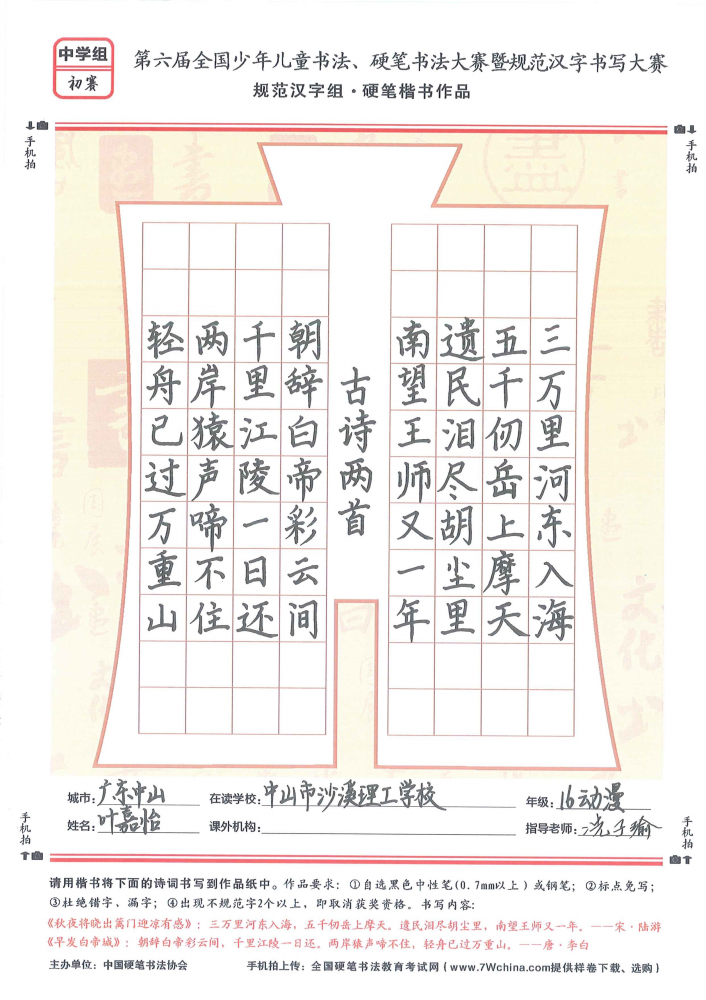 中学组
初赛
第六届全国少年儿童书法、硬笔书法大赛暨规范汉字书写大赛
规范汉字组·硬笔楷书作品
手机拍
手机拍
三万里河东入海
五千仞岳上摩天
遗民泪尽胡尘里
南望王师又一年
古诗两首
朝辞白帝彩云间
千里江陵一日还
两岸猿声啼不住
轻舟已过万重山
城市:广东中山 在读学校:中山市沙溪理工学校 年级:16动漫
姓名:叶嘉怡 课外机构: 指导老师:子瑜
手机拍
手机拍
请用楷书将下面的诗词书写到作品纸中。作品要求:①自选黑色中性笔(0.7mm以上)或钢笔;②标点免写;
③杜绝错字、漏字;④出现不规范字2个以上,即取消获奖资格。书写内容:
《秋夜将晓出篱门迎凉有感》:三万里河东入海,五千仞岳上摩天。遗民泪尽胡尘里,南望王师又一年。——宋·陆游
《早发白帝城》:朝辞白帝彩云间,千里江陵一日还。两岸猿声啼不住,轻舟已过万重山。——唐·李白
主办单位:中国硬笔书法协会 手机拍上传:全国硬笔书法教育考试网(www.7Wchina.com提供样卷下载、选购)